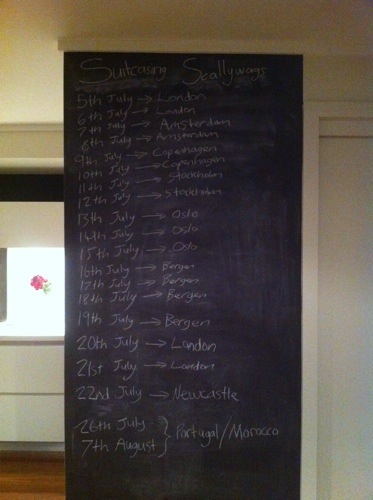 Suitcasing Scallywags
5th July → London
6th July → London
7th July → Amsterdam
8th July → Amsterdam
9th July → Copenhagen
10th July → Copenhagen
11th July → Stockholm
12th July → Stockholm
13th July → Oslo
14th July → Oslo
15th July → Oslo
16th July → Bergen
17th July → Bergen
18th July → Bergen
19th July → Bergen
20th July → London
21st July → London
22nd July → Newcastle
26th July
7th August } Portugal/Morocco